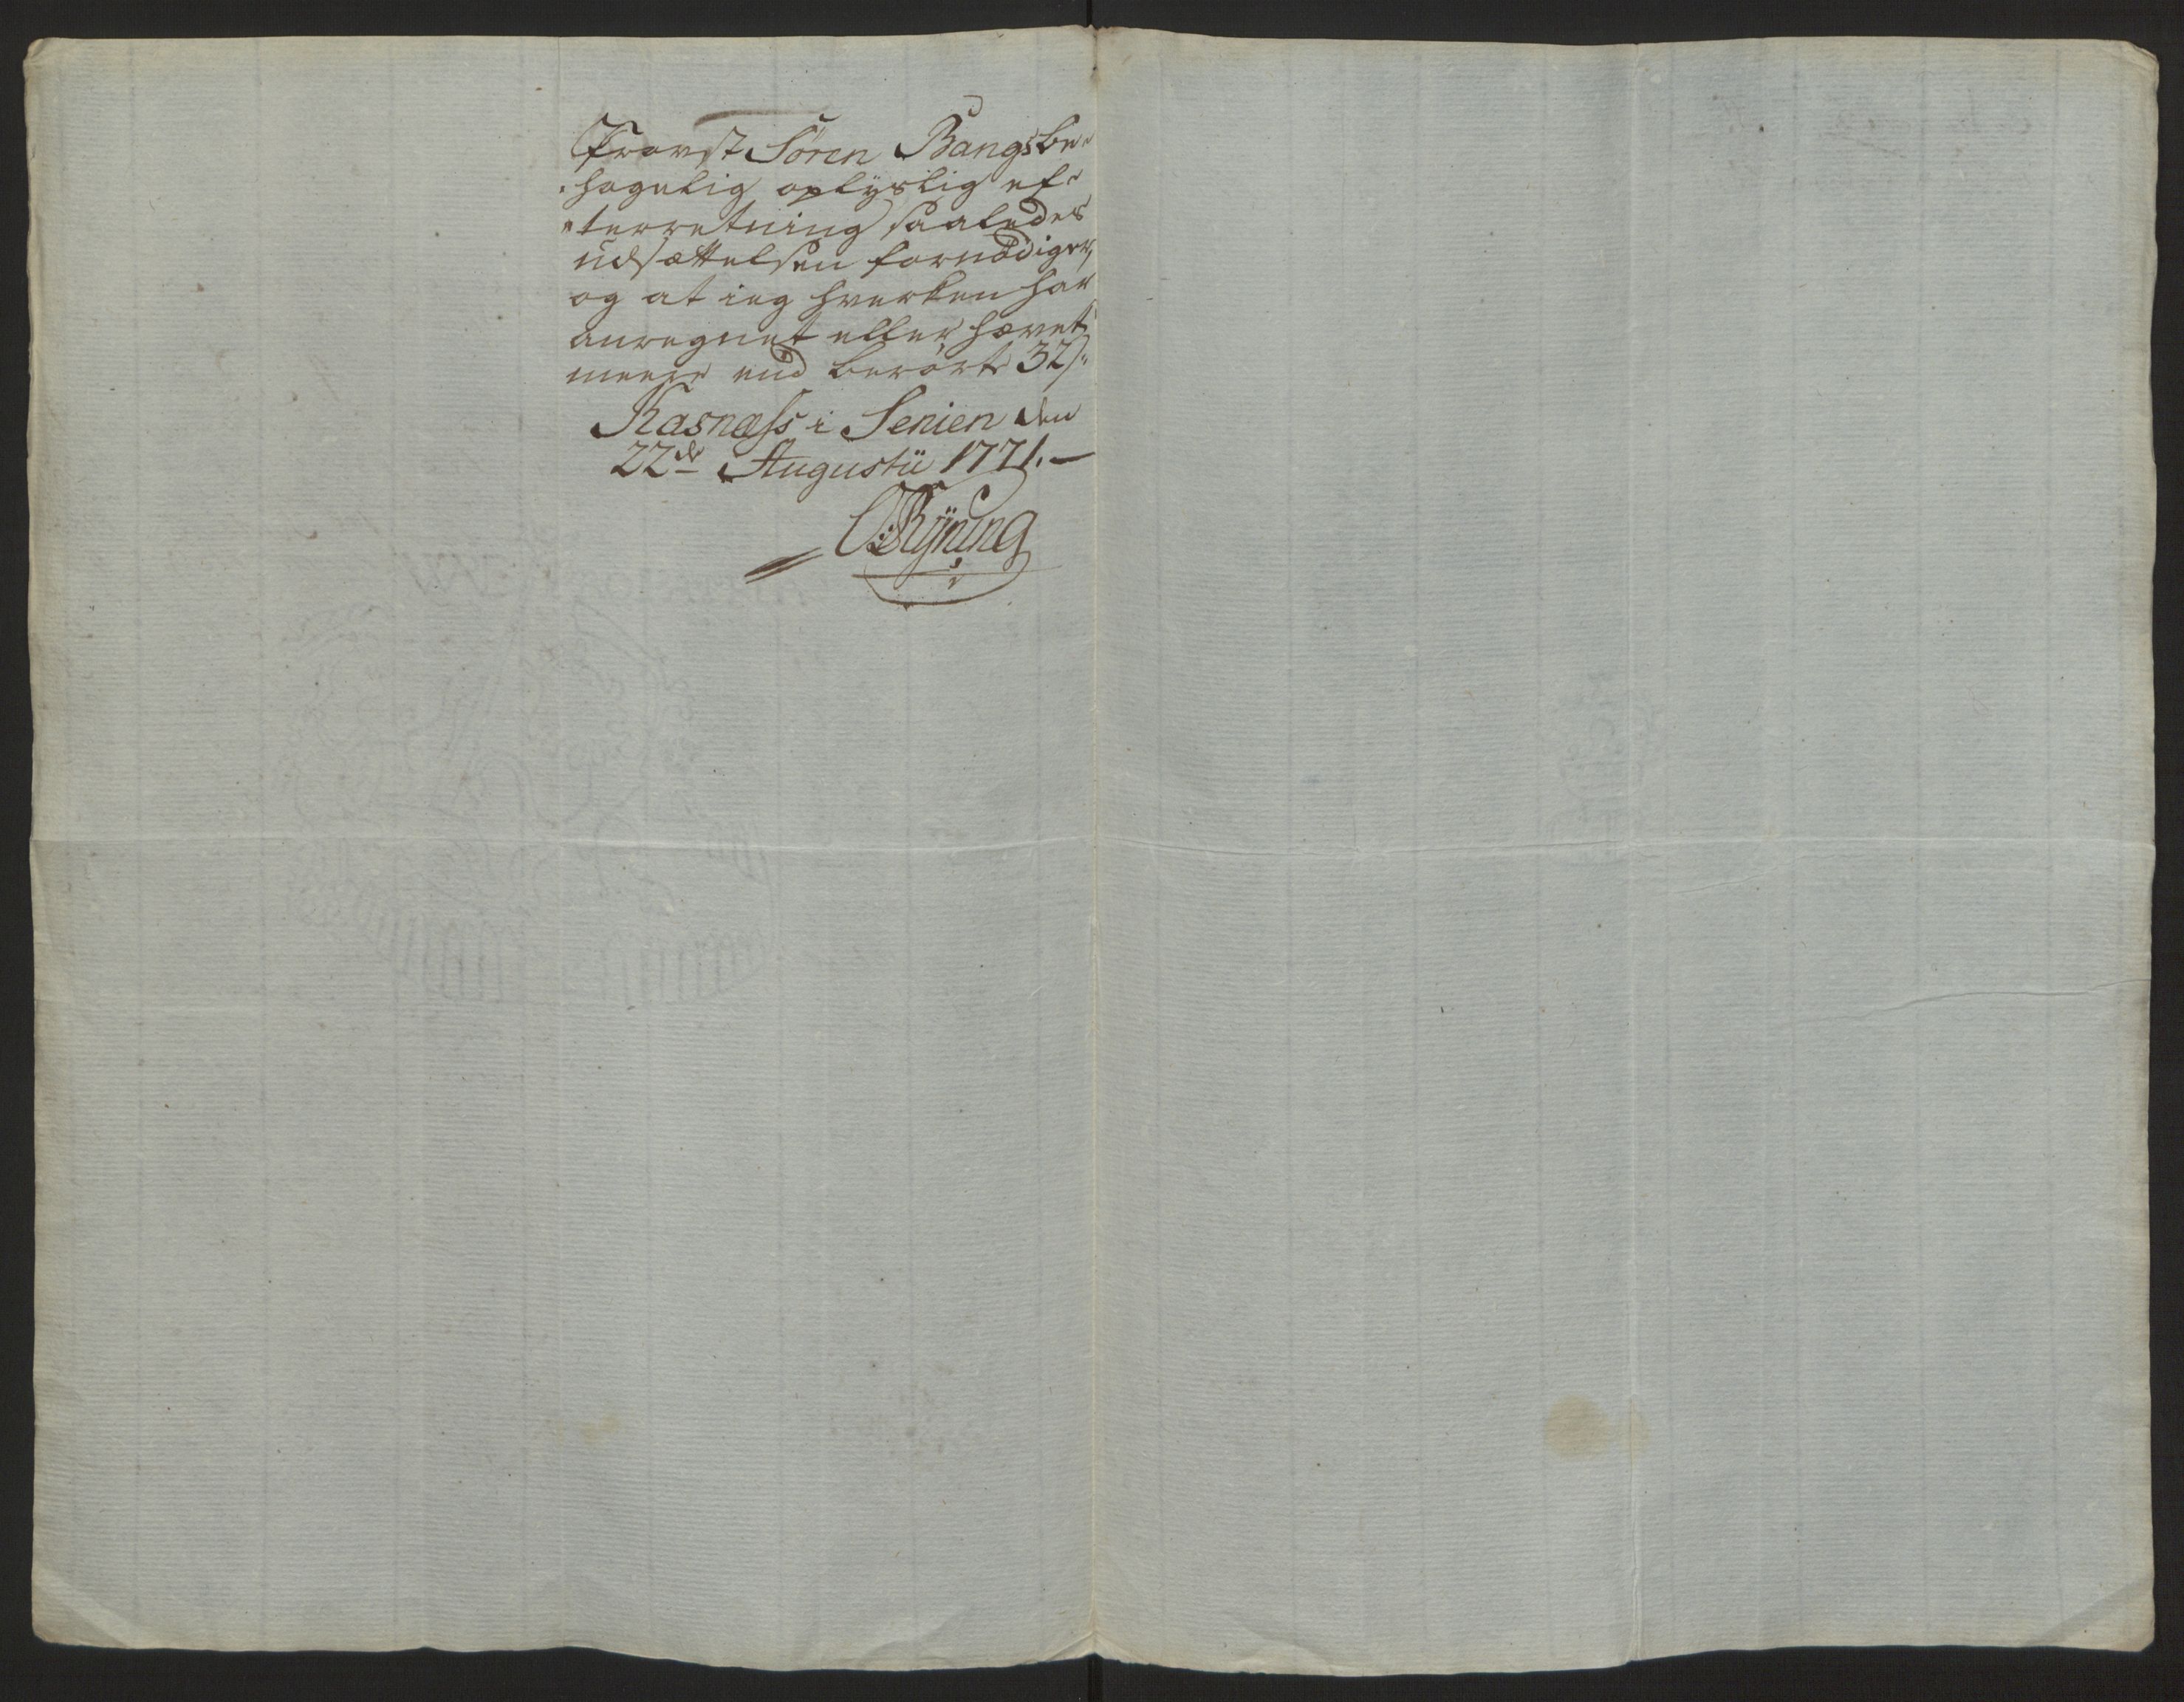 Provst Sören Bangs be-
hagelig oplÿslig ef-
terretning saaledes
udsættelsen fornödiger,
og at ieg hverken har
anregnet eller hævet
meere end berörte 32 s:
Kasnæss i Senien den
22de Augustii 1771. —
O:Rÿning